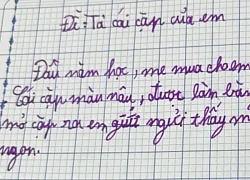 Đề: Tả cái cặp của em
Đầu năm học, mẹ mua cho em
cái cặp màu nâu, được làm bằn
mở cặp ra em ngửi thấy m
ngon.